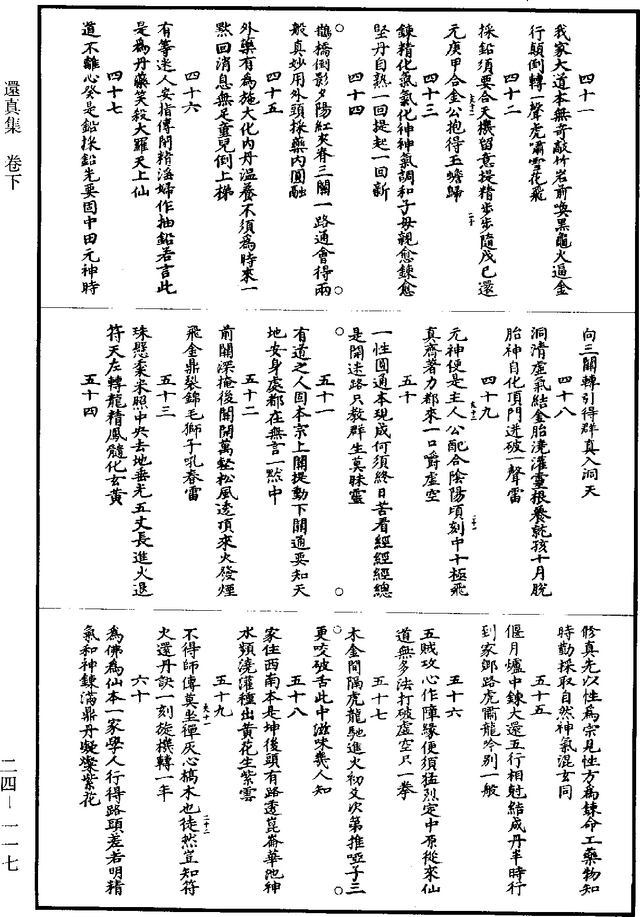 還真集　卷下
四十一
我家大道本無奇敲竹岩前喚黑龜火逼金
行顛倒轉一聲虎嘯雪花飛
四十二
採鉛須要合天機留意提精步步隨戊己還
元庚甲合金公抱得玉蟾歸
四十三
鍊精化氣氣化神神氣調和子母親愈鍊愈
堅丹自熟一回提起一回新
四十四
鵲橋倒影夕陽紅夾脊三關一路通會得兩
般真妙用外頭採藥內圓融
四十五
外藥有為施大化內丹溫養不須為時來一
點回消息無足童兒倒上梯
四十六
有等迷人妄指傳鬧精淫婦作抽鉛若言此
是為丹藥笑殺大羅天上仙
四十七
道不離心癸是鉛採鉛先要固中田元神時
向三關轉引得群真入洞天
四十八
洞清虛氣結金胎澆灌靈根養就孩十月脫
胎神自化頂門迸破一聲雷
四十九
元神便是主人公配合陰陽頃刻中十極飛
真齊著力都來一口嚼虛空
五十
一性圓通本現成何須終日苦看經經經總
是開迷路只教群生莫昧靈
五十一
有道之人固本宗上關提動下關通要知天
地安身處都在無言一默中
五十二
前關深掩後關開萬壑松風透頂來火發煙
飛金鼎裂錦毛獅子吼春雷
五十三
珠懸黍米照中央去地垂光五丈長進火退
符天左轉龍精鳳髓化玄黃
五十四
修真先以性為宗見性方為鍊命工藥物知
時勤採取自然神氣混玄同
五十五
偃月爐中鍊大還五行相尅結成丹半時行
到家鄉路虎嘯龍吟別一般
五十六
五賊攻心作障緣便須猛烈定中原從來仙
道無多法打破虛空只一拳
五十七
木金間隔虎龍馳進火初爻次第推啞子三
更咬破舌此中滋味幾人知
五十八
家住西南本是坤後頭有路透崑崙華池神
水頻澆灌種出黃花生紫雲
五十九
不得師傳莫坐禪灰心槁木也徒然豈知符
火還丹訣一刻旋機轉一年
六十
為佛為仙本一家學人行得路頭差若明精
氣和神鍊滿鼎丹凝燦紫花
二四—一一七